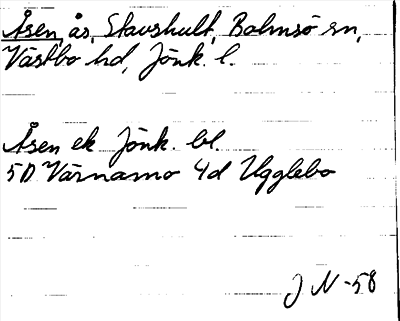 Åsen, ås, Stavshult, Bolmsö sn,
Västbo hd, Jönk. l.
Åsen ek Jönk. bl.
5D Värnamo 4d Ugglebo
J N -58